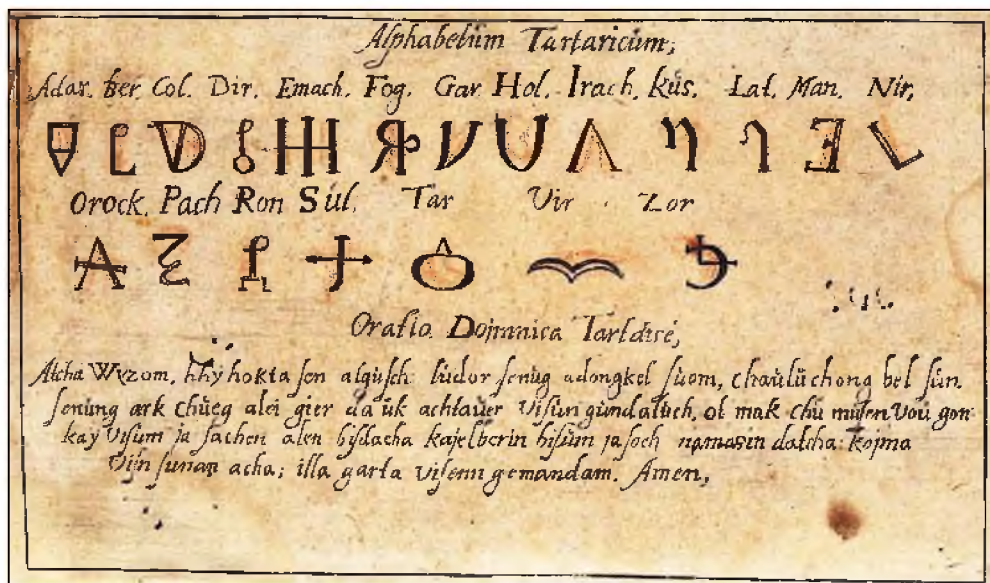 Alphabetum Tartaricum,
Adar. Ber. Col. Dir. Emach. Fog. Gar. Hol. Irach. Kus. Laf. Man. Nir.
Orock. Pach Ron Sul. Tar Vir . Zor
Oratio Dominica
Atcha Wyzom, hhy hokta sen algusch ludor senug adongkel suom, chauluchong bel sun
senung ark chueg alei gier da uk achtauer Visun gundaluch, ol mak chu musen Vou gon
kay Visum ja sachen alen bisdacha kajelberin bisum ja soch namasin datcha: kojma
Visn sunan acha; illa garta Visenn gemandam. Amen,